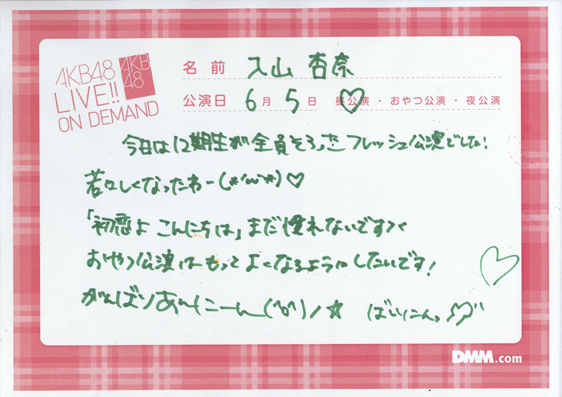 AKB48
LIVE!!
ON DEMAND
AKB
48
名前 入山 杏奈
公演日 6月 5日 ♡ 昼公演・おやつ公演・夜公演
今日は12期生が全員そろったフレッシュ公演でした!
若々しくなったわー(*'ω'*)♡
「初恋よ こんにちは」まだ慣れないです><
おやつ公演はもっとよくなるようにしたいです!
がんばりあんにーん(^o^)ノ☆
DMM.com